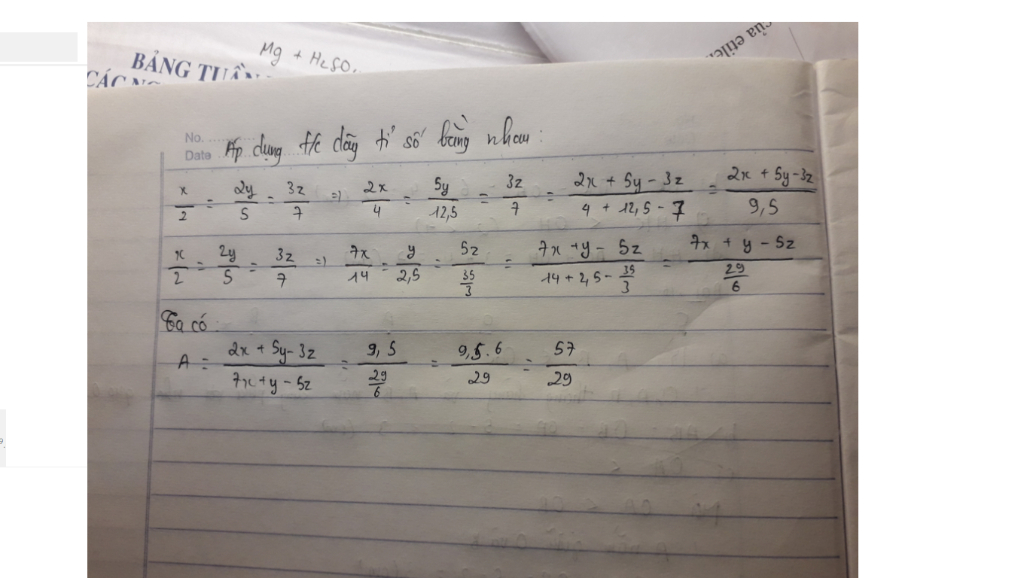 của etilen
Mg + H₂SO₄
BẢNG TUẦN
CÁC NG
No.
Date
Áp dụng t/c dãy tỉ số bằng nhau:
x/2 = 2y/5 = 3z/7 => 2x/4 = 5y/12,5 = 3z/7 = (2x + 5y - 3z)/(4 + 12,5 - 7) = (2x + 5y - 3z)/9,5
x/2 = 2y/5 = 3z/7 => 7x/14 = y/2,5 = 5z/(35/3) = (7x + y - 5z)/(14 + 2,5 - 35/3) = (7x + y - 5z)/(29/6)
Ta có:
A = (2x + 5y - 3z)/(7x + y - 5z) = 9,5/(29/6) = 9,5.6/29 = 57/29